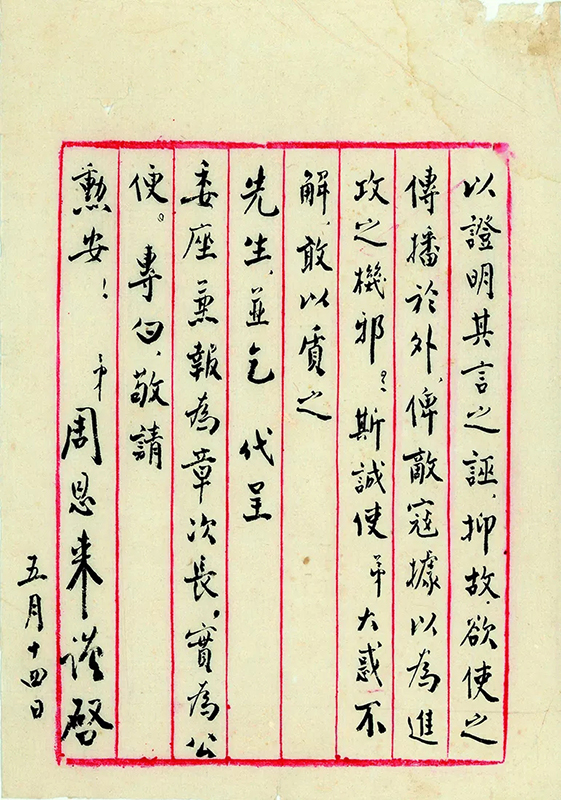 以證明其言之誣,抑故欲使之
傳播於外,俾敵寇據以為進
攻之機邪?斯誠使弟大惑不
解,敢以質之
先生,並乞 代呈
委座 報為章次長,實為公
便。專白,敬請
勳安!
弟周恩來謹啓
五月十四日